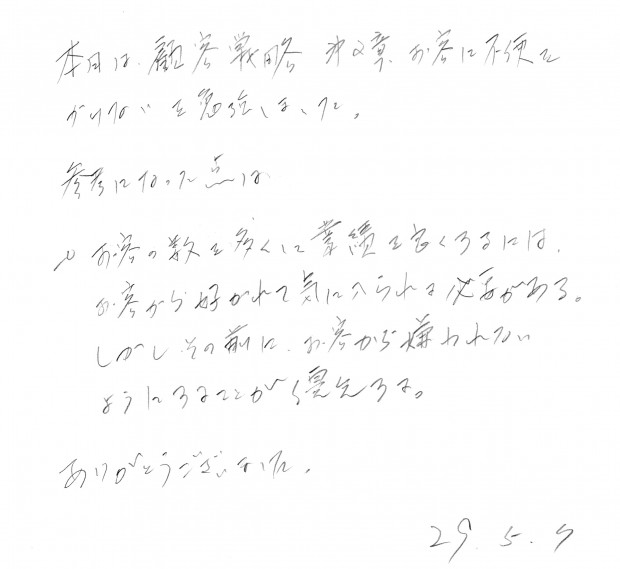 本日は、顧客戦略 第2章、お客に不便を
かけないを勉強しました。
参考になった点は
お客の数を多くし業績を良くするには、
お客から好かれて気に入られる必要がある。
しかしその前に、お客から嫌われない
ようにすることが優先する。
ありがとうございました。
29.5.9